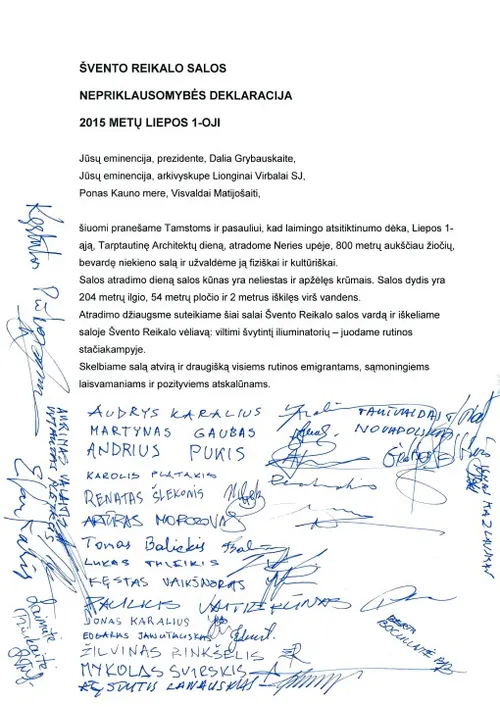 ŠVENTO REIKALO SALOS
NEPRIKLAUSOMYBĖS DEKLARACIJA
2015 METŲ LIEPOS 1-OJI
Jūsų eminencija, prezidente, Dalia Grybauskaite,
Jūsų eminencija, arkivyskupe Lionginai Virbalai SJ,
Ponas Kauno mere, Visvaldai Matijošaiti,
šiuomi pranešame Tamstoms ir pasauliui, kad laimingo atsitiktinumo dėka, Liepos 1-
ąją, Tarptautinę Architektų dieną, atradome Neries upėje, 800 metrų aukščiau žiočių,
bevardę niekieno salą ir užvaldėme ją fiziškai ir kultūriškai.
Salos atradimo dieną salos kūnas yra neliestas ir apžėlęs krūmais. Salos dydis yra
204 metrų ilgio, 54 metrų pločio ir 2 metrus iškilęs virš vandens.
Atradimo džiaugsme suteikiame šiai salai Švento Reikalo salos vardą ir iškeliame
saloje Švento Reikalo vėliavą: viltimi švytintį iliuminatorių – juodame rutinos
stačiakampyje.
Skelbiame salą atvirą ir draugišką visiems rutinos emigrantams, sąmoningiems
laisvamaniams ir pozityviems atskalūnams.
AUDRYS KARALIUS
MARTYNAS GAUBAS
ANDRIUS PUKIS
KAROLIS PLATAKIS
RENATAS ŠLEKONIS
ARTŪRAS MOROZOVAS
Tomas Balickis
LUKAS
KĘSTAS VAIKŠNORAS
PAULIUS VAITIEKŪNAS
JONAS KARALIUS
EDGARAS JANUTAUSKAS
ŽILVINAS RINKŠELIS
MYKOLAS SVIRSKIS
KĘSTUTIS LANAUSKAS